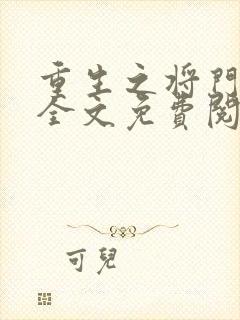 重生之将門
全文免費閱
可兒